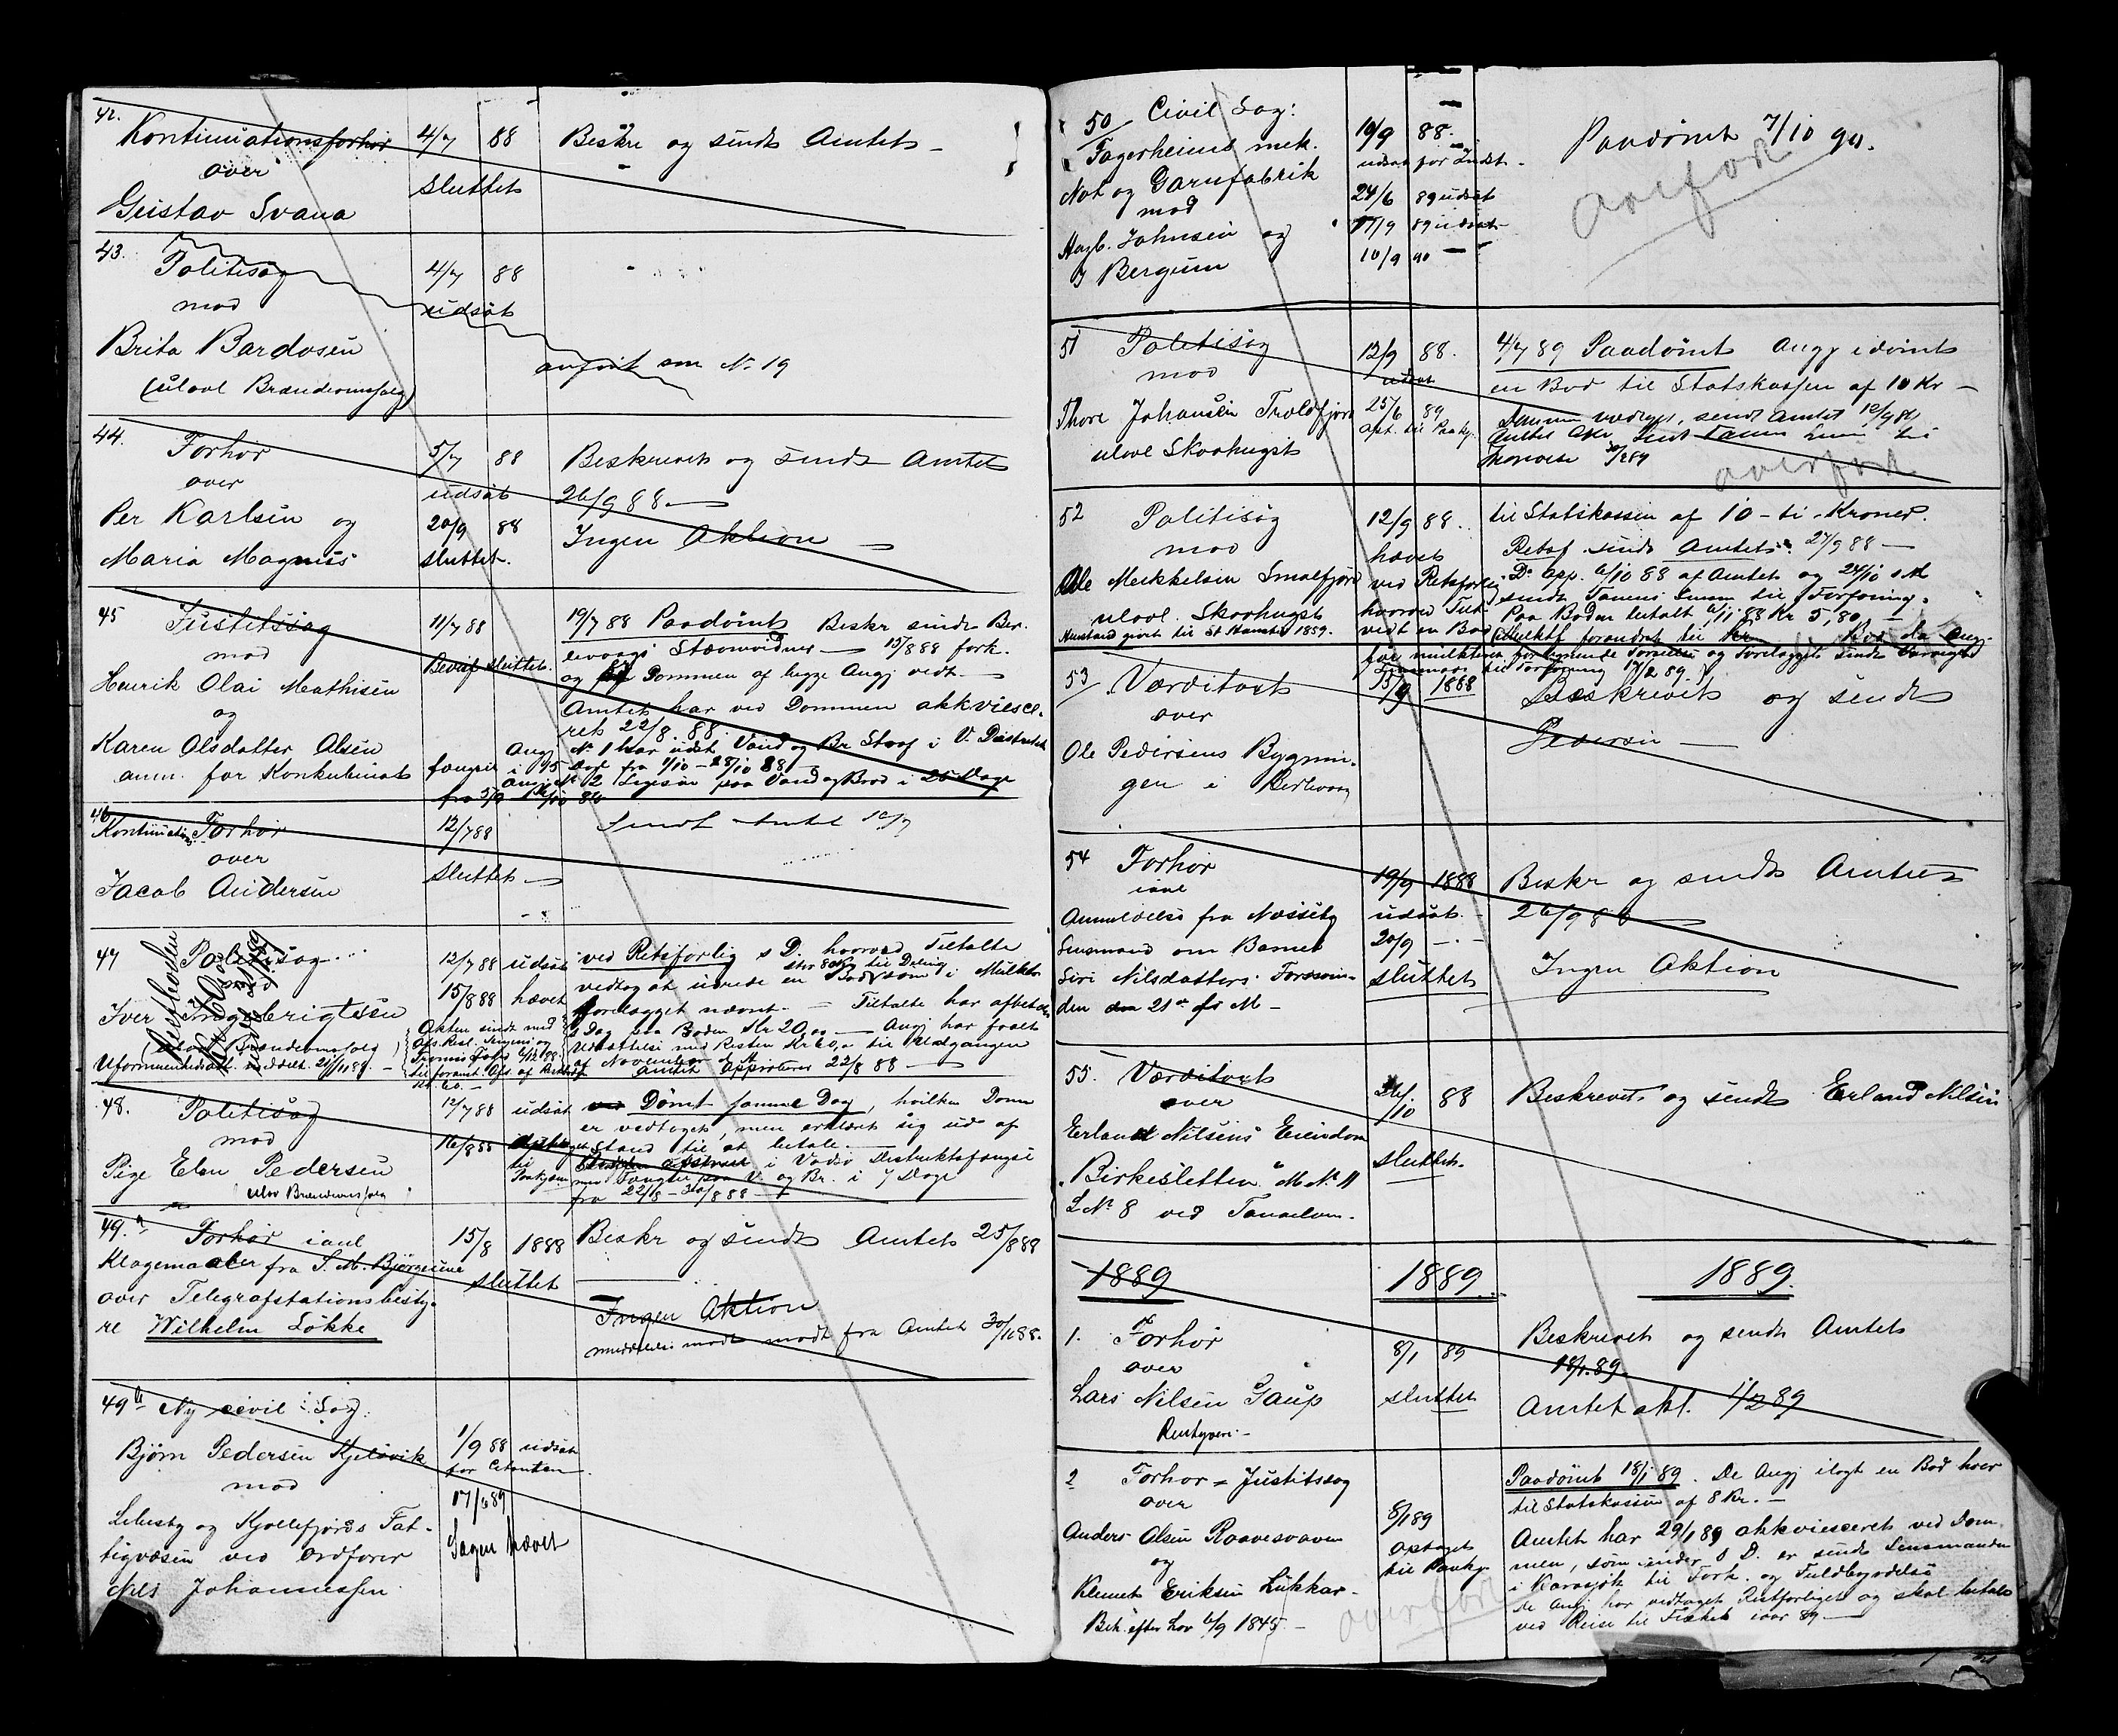 42.
Kontinuationsforhør 4/7 88 Beskr og sendt Amtet
over
sluttet
Gustav Svana
43.
Politisag 4/7 88
mod
udsat
Brita Bardosen
anført som No 19
(ulovl Brændevinssalg)
44.
Forhør 5/7 88 Beskrevet og sendt Amtet
over udsat 26/9 88
Per Karlsen og 20/9 88 Ingen Aktion
Maria Magnus sluttet.
45
Justitssag 11/7 88 19/7 88 Paadømt Beskr sendt Ber-
mod Bevisf sluttet. levaags Stævnevidner 15/8 88 fork.
Henrik Olai Mathisen og Dommen af begge Angj vedt.
og Amtet har ved Dommen akkviesce-
ret 22/8. 88.
Karen Olsdatter Olsen No 1 har udst Vand og Br Straf i V. Distrikts
anm. for Konkubinat
fra 1/10 – 25/10 88
paa Vand og Brød i 25 Dage
46
Kontinuations Forhør 12/7 88 Sendt Amtet
over
sluttet
Jacob Andersen
47
Politisag 12/7 88 udsat ved Retsforlig s D. hvorved Tiltalte
vedtog at udrede en Bod som i Mulkts
15/8 88 hævet
forelægget nævnt. – Tiltalte har afbetalt
Iver Ingebrigtsen
s Dag paa Boden Kr 20,00 – Angj har faaet
Udsættelse med Resten Kr 60,00 til Udgangen
af November d A
Amtet approberer 22/8 88
48.
Politisag 12/7 88 udsat Dømt samme Dag, hvilken Dom
mod er vedtaget, men erklæret sig ude af
16/8 88 Optaget Stand til at betale.
Pige Elen Pedersen til i Vadsø Distriktsfængsel
Paakj med Fængsel paa V. og Br. i 7 Dage
ulov Brændevinssalg
fra 22/8 – 30/8 88
49.a
Forhør i anl 15/8 1888 Beskr og sendt Amtet 25/8 88
Klagemaaler fra S. M. Bjørgeune
sluttet
over Telegrafstationsbesty- Ingen Aktion
re Wilhelm Løkke
meddelelse modt fra Amtet 30/11 88.
49b Ny civil Sag:
Bjørn Pedersen Kjelsvik 1/9 88 udsat
mod for Citanten.
17/6 89
Lebesby og Kjøllefjords Fat- Sagen hævet
tigvæsen ved Ordfører
Nels Johannessen
50 Civil Sag: 10/9 88. Paadømt 7/10 90.
Fagerheims mek. udsat for Indst.
Not og Garnfabrik 24/6 89 udsat overført
mod 17/9 89 udsat
Hagb. Johnsen og 10/9 90
J Bergum
51
Politisag 12/9 88. 4/7 89 Paadømt Angj idømt
mod udsat en Bod til Statskassen af 10 Kr –
Thore Johansen Troldfjord 25/6 89 Dommen vedtaget, sendt Amtet 12/7 89
opt. til Paakj.
ulovl Skovhugst
overført
52
Politisag 12/9 88. til Statskassen af 10 – ti – Kroner.
mod hævet Retsf. sendt Amtet 27/9 88 –
Ole Mekkelsen Smalfjord ved Retsforlig Do app. 6/10 88 af Amtet og 24/10 s A
sendt Tanens Lensm til Forføining.
ulovl. Skovhugst hvorved Tilt Paa Boden betalt 6/11 88 Kr 5,80, –
vedt en Bod
53
Værditaxt 15/9 1888 Beskrevet og sendt
over Pedersen
Ole Pedersens Bygnin-
gen i Berlevaag
54
Forhør 19/9 1888 Beskr og sendt Amtet
i anl
Anmeldelse fra Næsseby udsat. 26/9 88
Lensmand om Barnet 20/9 – . –
Siri Nilsdatters Forsvin- sluttet Ingen Aktion
den den 21de f M –
55.
Værditaxt 26/10 88 Beskrevet og sendt Erland Nilsen
over
Erlandt Nilsens Eiendom
sluttet.
„Birkesletten“ M No 11
L No 8 ved Tanaelven.
1889 1889 1889.
1. Forhør 8/1 89 Beskrevet og sendt Amtet
over 18/1 89.
Lars Nilsen Gaup sluttet Amtet akt. 1/2 89
Rentyveri –
2 Forhør = Justitssag Paadømt 18/1 89. De Angj ilagt en Bod hver
over 8/1 89 til Statskassen af 8 Kr. –
Anders Olsen Raavesvaven optaget Amtet har 29/1 89 akkviesceret ved Dom-
og til Paakj men, som under s D. er sendt Lensmanden
Klemet Eriksen Lukkar- i Karasjok til Fork. og Fuldbyrdelse
De Angj har vedtaget Retforliget og skal betale
Beh. efter Lov 6/9 1845 – overført ved Reise til Fisket iaar 89 –